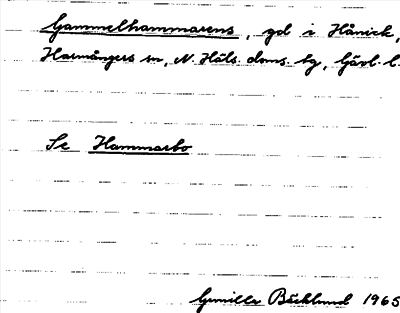 Gammelhammarens, gd i Hånick,
Harmångers sn, N. Häls. doms. hg, Gävl. l.
Se Hammarbo
Gunilla Bäcklund 1965